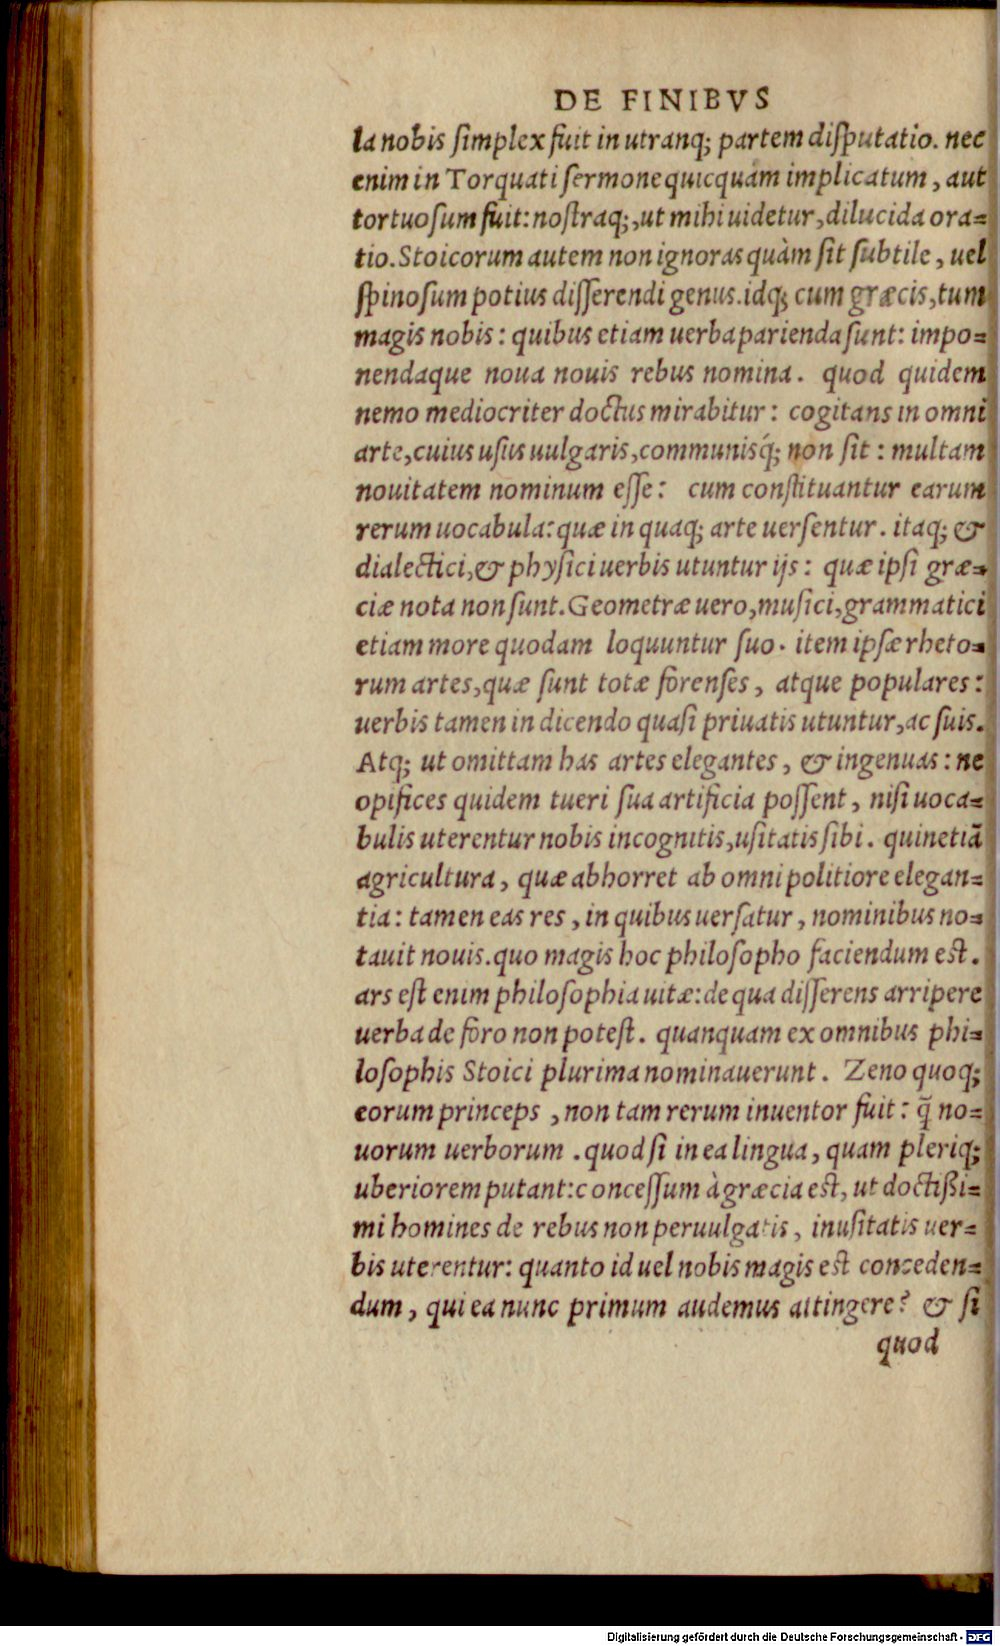 DE FINIBVS
la nobis ſimplex fuit in utranq; partem diſputatio. nec
enim in Torquati ſermone quicquàm implicatum, aut
tortuoſum fuit: noſtraq;, ut mihi uidetur, dilucida ora=
tio. Stoicorum autem non ignoras quàm ſit ſubtile, uel
ſpinoſum potius diſſerendi genus. idq; cum græcis, tum
magis nobis: quibus etiam uerba parienda ſunt: impo=
nendaque noua nouis rebus nomina. quod quidem
nemo mediocriter doctus mirabitur: cogitans in omni
arte, cuius uſus uulgaris, communisq́; non ſit: multam
nouitatem nominum eſſe: cum conſtituantur earum
rerum uocabula: quæ in quaq; arte uerſentur. itaq; &
dialectici, & phyſici uerbis utuntur ijs: quæ ipſi græ=
ciæ nota non ſunt. Geometræ uero, muſici, grammatici
etiam more quodam loquuntur ſuo. item ipſæ rheto=
rum artes, quæ ſunt totæ forenſes, atque populares:
uerbis tamen in dicendo quaſi priuatis utuntur, ac ſuis.
Atq; ut omittam has artes elegantes, & ingenuas: ne
opifices quidem tueri ſua artificia poſſent, niſi uoca=
bulis uterentur nobis incognitis, uſitatis ſibi. quinetiā
agricultura, quæ abhorret ab omni politiore elegan=
tia: tamen eas res, in quibus uerſatur, nominibus no=
tauit nouis. quo magis hoc philoſopho faciendum eſt.
ars eſt enim philoſophia uitæ: de qua diſſerens arripere
uerba de foro non poteſt. quanquam ex omnibus phi=
loſophis Stoici plurima nominauerunt. Zeno quoq;
eorum princeps, non tam rerum inuentor fuit: q̄ no=
uorum uerborum. quod ſi in ea lingua, quam pleriq;
uberiorem putant: conceſſum à græcia eſt, ut doctißi=
mi homines de rebus non peruulgatis, inuſitatis uer=
bis uterentur: quanto id uel nobis magis eſt conceden=
dum, qui ea nunc primum audemus attingere? & ſi
quod
Digitalisierung gefördert durch die Deutsche Forschungsgemeinschaft - DFG